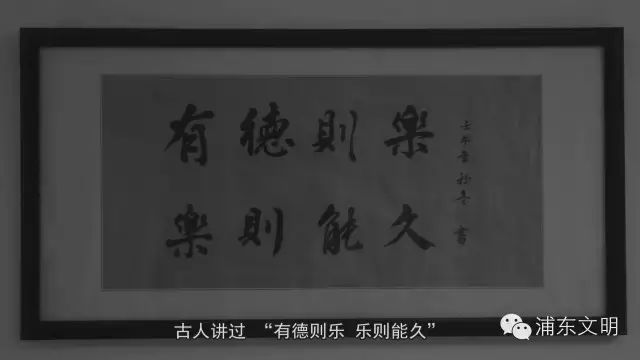 有德則樂
樂則能久
書
古人讲过 “有德则乐 乐则能久”
浦东文明